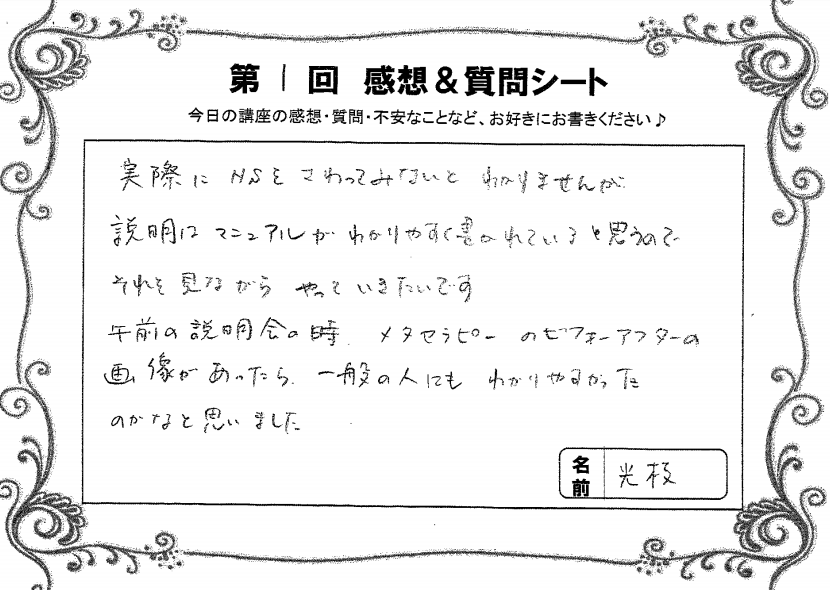 第1回 感想&質問シート
今日の講座の感想・質問・不安なことなど、お好きにお書きください♪
実際に NSを さわってみないと わかりませんが
説明は マニュアルが わかりやすく書かれていると思うので
それを見ながら やって いきたいです
午前の説明会の時 メタセラピーのビフォーアフターの
画像があったら、一般の人にも わかりやすかった
のかなと思いました
名前 光枝